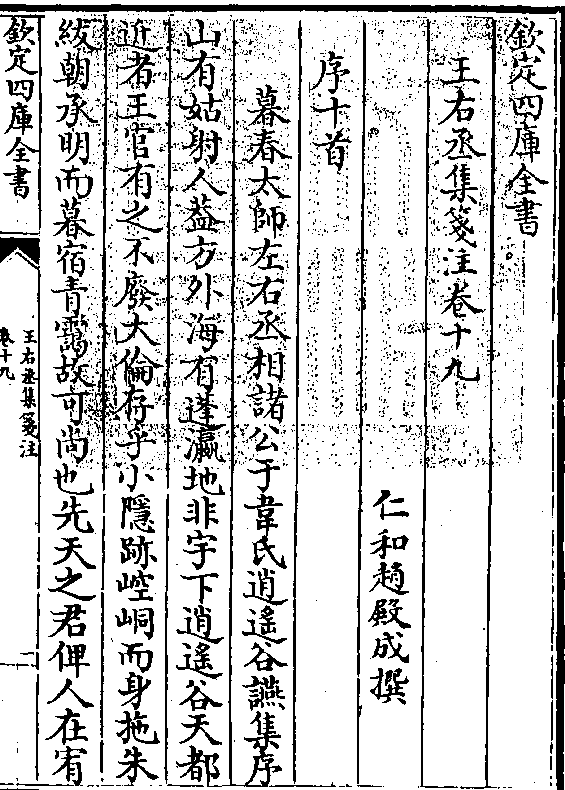 欽定四庫全書
王右丞集箋注卷十九
仁和趙殿成撰
序十首
暮春太師左右丞相諸公于韋氏逍遙谷讌集序
山有姑射人葢方外海有蓬瀛地非宇下逍遙谷天都
近者王官有之不廢大倫存乎小隱跡崆峒而身拖朱
紱朝承明而暮宿青靄故可尚也先天之君俾人在宥
欽定四庫全書
王右丞集箋注
卷十九
二